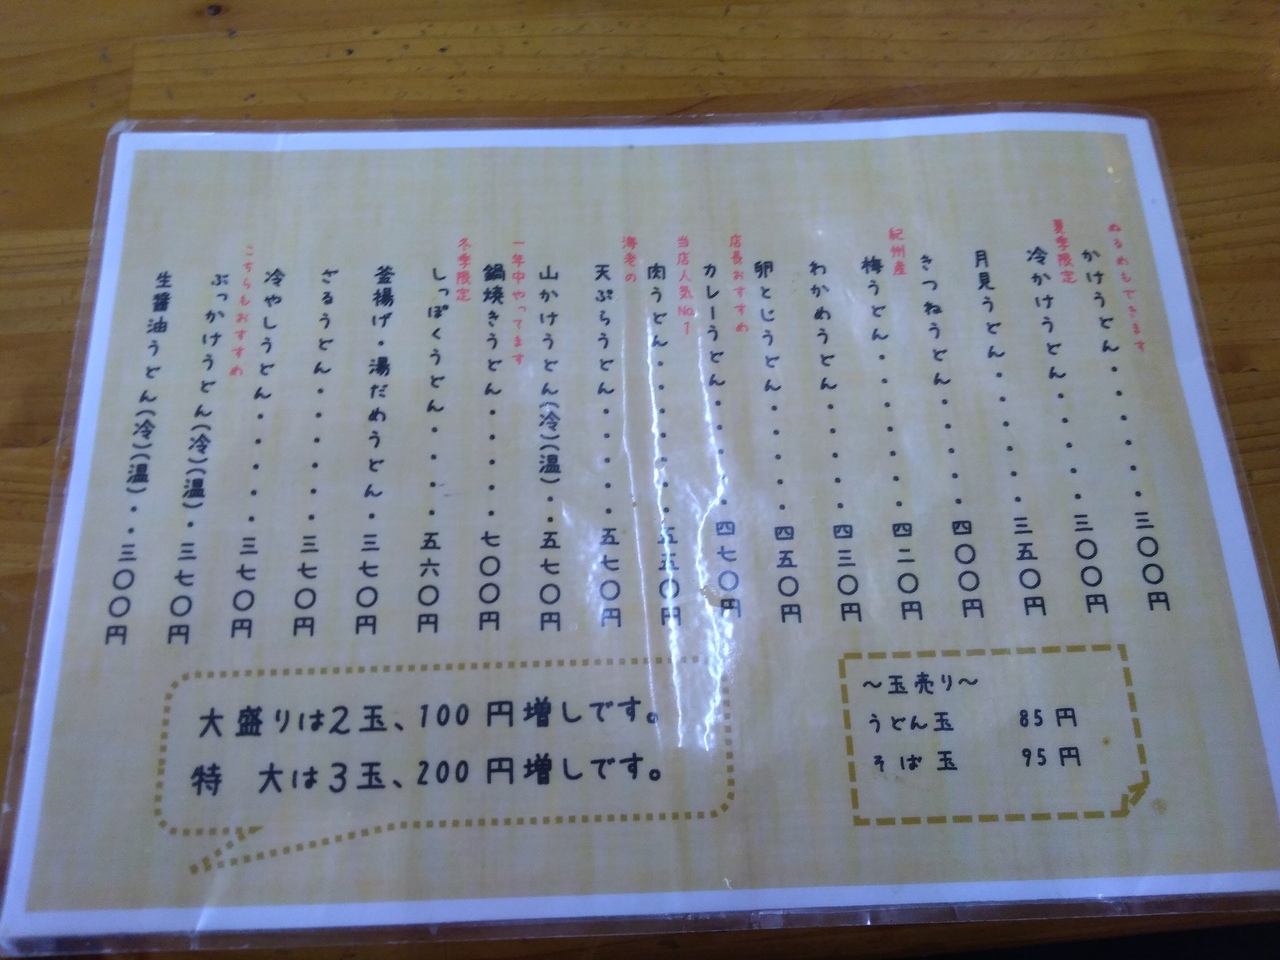 ぬるめもできます
かけうどん・・・・・・三〇〇円
夏季限定
冷かけうどん・・・・・三〇〇円
月見うどん・・・・・・三五〇円
きつねうどん・・・・・四〇〇円
紀州産
梅うどん・・・・・・・四二〇円
わかめうどん・・・・・四三〇円
卵とじうどん・・・・・四五〇円
店長おすすめ
カレーうどん・・・・・四七〇円
当店人気No.1
肉うどん・・・・・・・五五〇円
海老の
天ぷらうどん・・・・・五七〇円
山かけうどん(冷)(温)・・五七〇円
一年中やってます
鍋焼きうどん・・・・・七〇〇円
冬季限定
しっぽくうどん・・・・・五六〇円
釜揚げ・湯だめうどん・三七〇円
ざるうどん・・・・・・三七〇円
冷やしうどん・・・・・三七〇円
こちらもおすすめ
ぶっかけうどん(冷)(温)・三七〇円
生醤油うどん(冷)(温)・・三〇〇円
大盛りは2玉、100円増しです。
特 大は3玉、200円増しです。
～玉売り～
うどん玉 85円
そば玉 95円